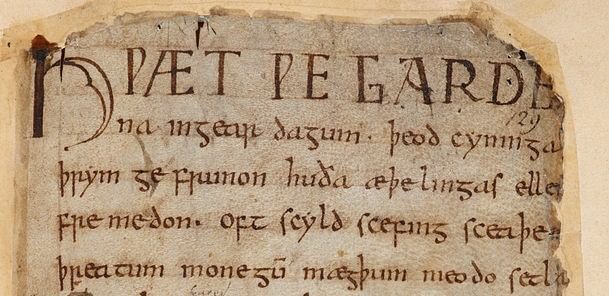 HǷÆT ǷE GARDE
129
na ingear dagum · þeod cyninga
þrym ge frunon huða æþelingas ellen
fremedon · oft scyld scefing sceaþen
þreatum monegū mægþum meodo setla